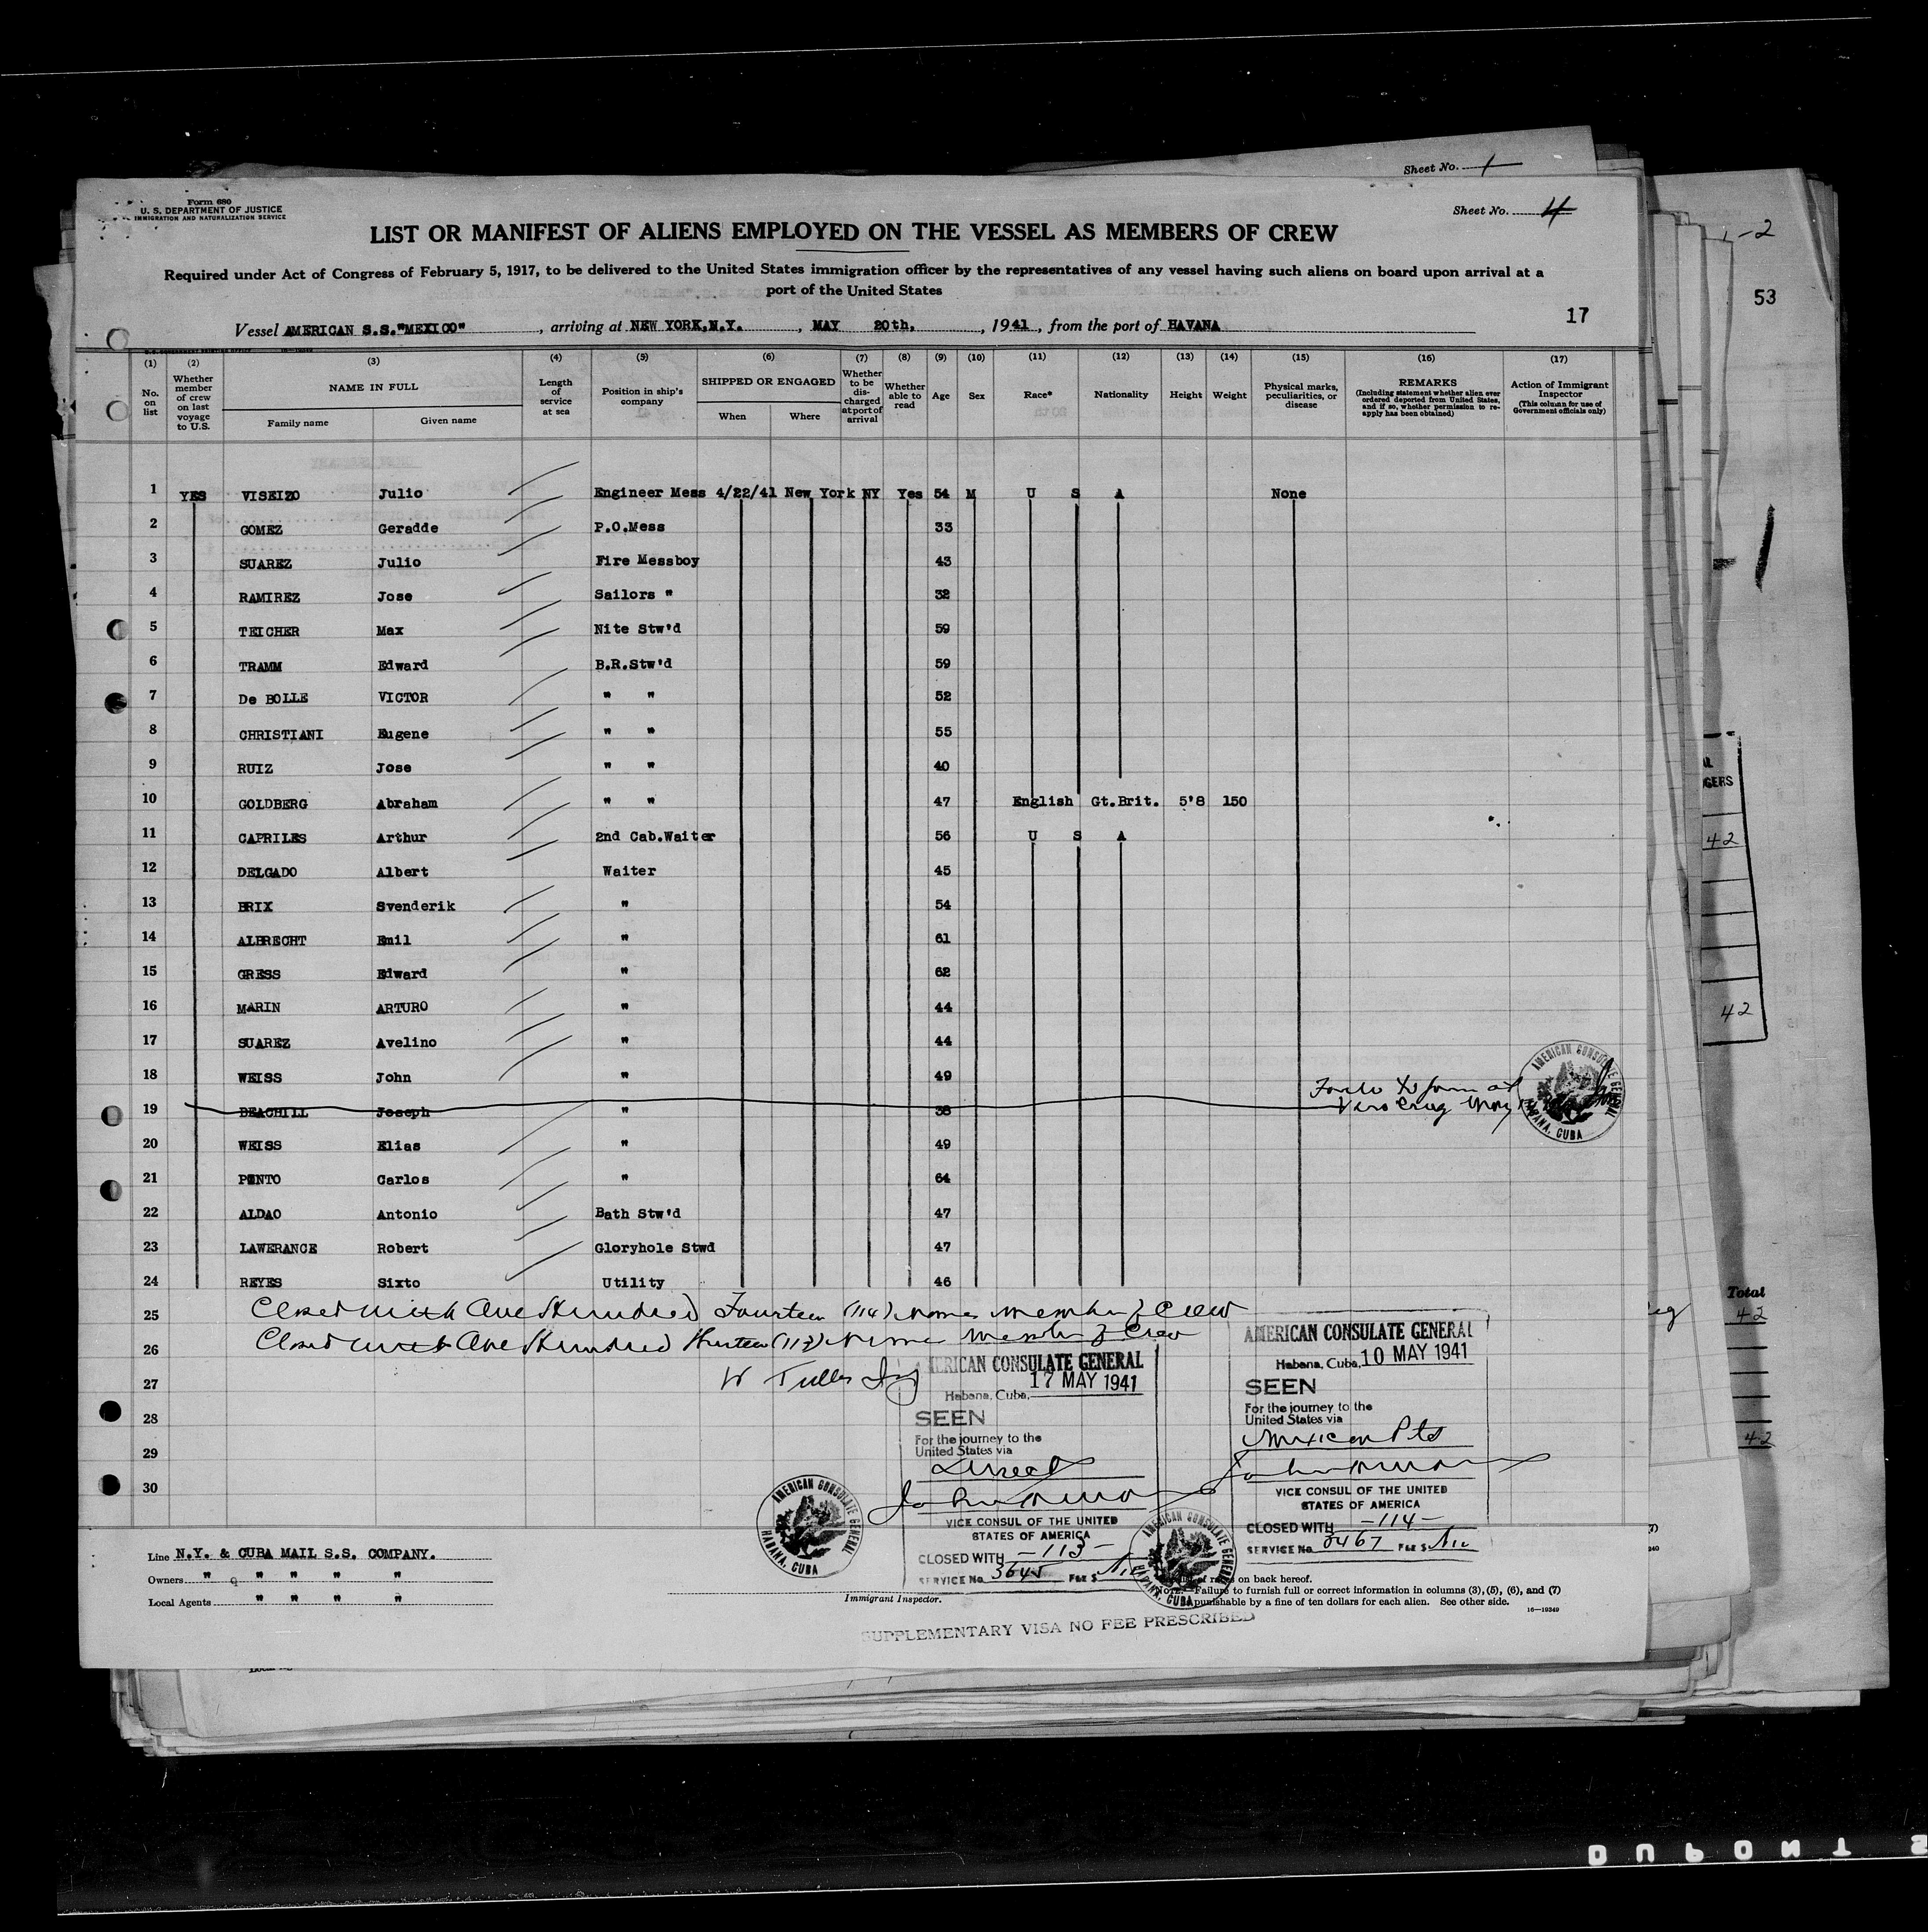 Sheet No. 1
Form 680
U. S. DEPARTMENT OF JUSTICE
IMMIGRATION AND NATURALIZATION SERVICE
Sheet No. 4
LIST OR MANIFEST OF ALIENS EMPLOYED ON THE VESSEL AS MEMBERS OF CREW
Required under Act of Congress of February 5, 1917, to be delivered to the United States immigration officer by the representatives of any vessel having such aliens on board upon arrival at a
port of the United States
-2
53
17
Vessel AMERICAN S.S."MEXICO" , arriving at NEW YORK,N.Y. , MAY 20th, , 1941 , from the port of HAVANA
(1) (2) (3) (4) (5) (6) (7) (8) (9) (10) (11) (12) (13) (14) (15) (16) (17)
No. on list
Whether member of crew on last voyage to U.S.
NAME IN FULL
Family name Given name
Length of service at sea
Position in ship's company
SHIPPED OR ENGAGED
When Where
Whether to be discharged at port of arrival
Whether able to read
Age
Sex
Race*
Nationality
Height
Weight
Physical marks, peculiarities, or disease
REMARKS
(Including statement whether alien ever ordered deported from United States, and if so, whether permission to reapply has been obtained)
Action of Immigrant Inspector
(This column for use of Government officials only)
1 YES VISEIZO Julio Engineer Mess 4/22/41 New York NY Yes 54 M U S A None
2 GOMEZ Geradde P.O.Mess 33
3 SUAREZ Julio Fire Messboy 43
4 RAMIREZ Jose Sailors " 32
5 TEICHER Max Nite Stw'd 59
6 TRAMM Edward B.R.Stw'd 59
7 De BOLLE VICTOR " " 52
8 CHRISTIANI Eugene " " 55
9 RUIZ Jose " " 40
10 GOLDBERG Abraham " " 47 English Gt.Brit. 5'8 150
11 CAPRILES Arthur 2nd Cab.Waiter 56 U S A
12 DELGADO Albert Waiter 45
13 BRIX Svenderik " 54
14 ALBRECHT Emil " 61
15 GRESS Edward " 62
16 MARIN ARTURO " 44
17 SUAREZ Avelino " 44
18 WEISS John " 49
19 DEAGHILL Joseph " 38
20 WEISS Elias " 49
21 PINTO Carlos " 64
22 ALDAO Antonio Bath Stw'd 47
23 LAWERANCE Robert Gloryhole Stwd 47
24 REYES Sixto Utility 46
AMERICAN CONSULATE GENERAL
HABANA, CUBA
25 Closed with One Hundred Fourteen (114) Names Members of Crew
26 Closed with One Hundred Thirteen (113) Names Members of Crew
27
28
29
30
AMERICAN CONSULATE GENERAL
Habana, Cuba, 17 MAY 1941
SEEN
For the journey to the
United States via
Direct
VICE CONSUL OF THE UNITED
STATES OF AMERICA
CLOSED WITH -113-
SERVICE No. FEE $ Nil
AMERICAN CONSULATE GENERAL
Habana, Cuba, 10 MAY 1941
SEEN
For the journey to the
United States via
Mexican Pts
VICE CONSUL OF THE UNITED
STATES OF AMERICA
CLOSED WITH -114-
SERVICE No. 3467 FEE $ Nil
AMERICAN CONSULATE GENERAL
HABANA, CUBA
AMERICAN CONSULATE GENERAL
HABANA, CUBA
Line N.Y. & CUBA MAIL S.S. COMPANY.
Owners " " " " "
Local Agents " " " "
Immigrant Inspector.
on back hereof.
Failure to furnish full or correct information in columns (3), (5), (6), and (7)
punishable by a fine of ten dollars for each alien. See other side.
16—19349
SUPPLEMENTARY VISA NO FEE PRESCRIBED
GERS
42
42
Total
42
42
DUPONT S